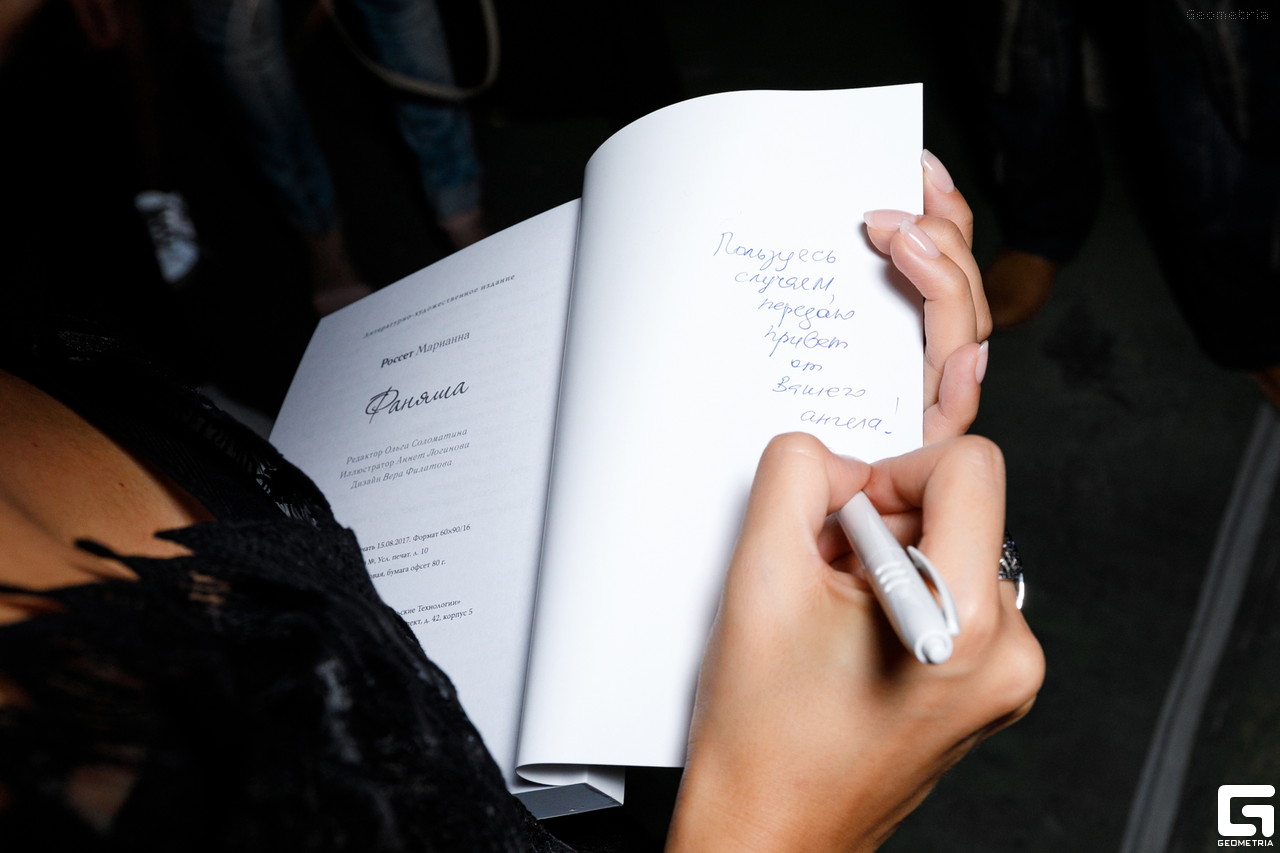 Geometria
Литературно-художественное издание
Россет Марианна
Фаняша
Редактор Ольга Соломатина
Иллюстратор Аннет Логинова
Дизайн Вера Филатова
15.08.2017. Формат 60x90/16
№. Усл. печат. л. 10
бумага офсет 80 г.
Технологии»
д. 42, корпус 5
Пользуясь
случаем,
передаю
привет
от
вашего
ангела!
GEOMETRIA